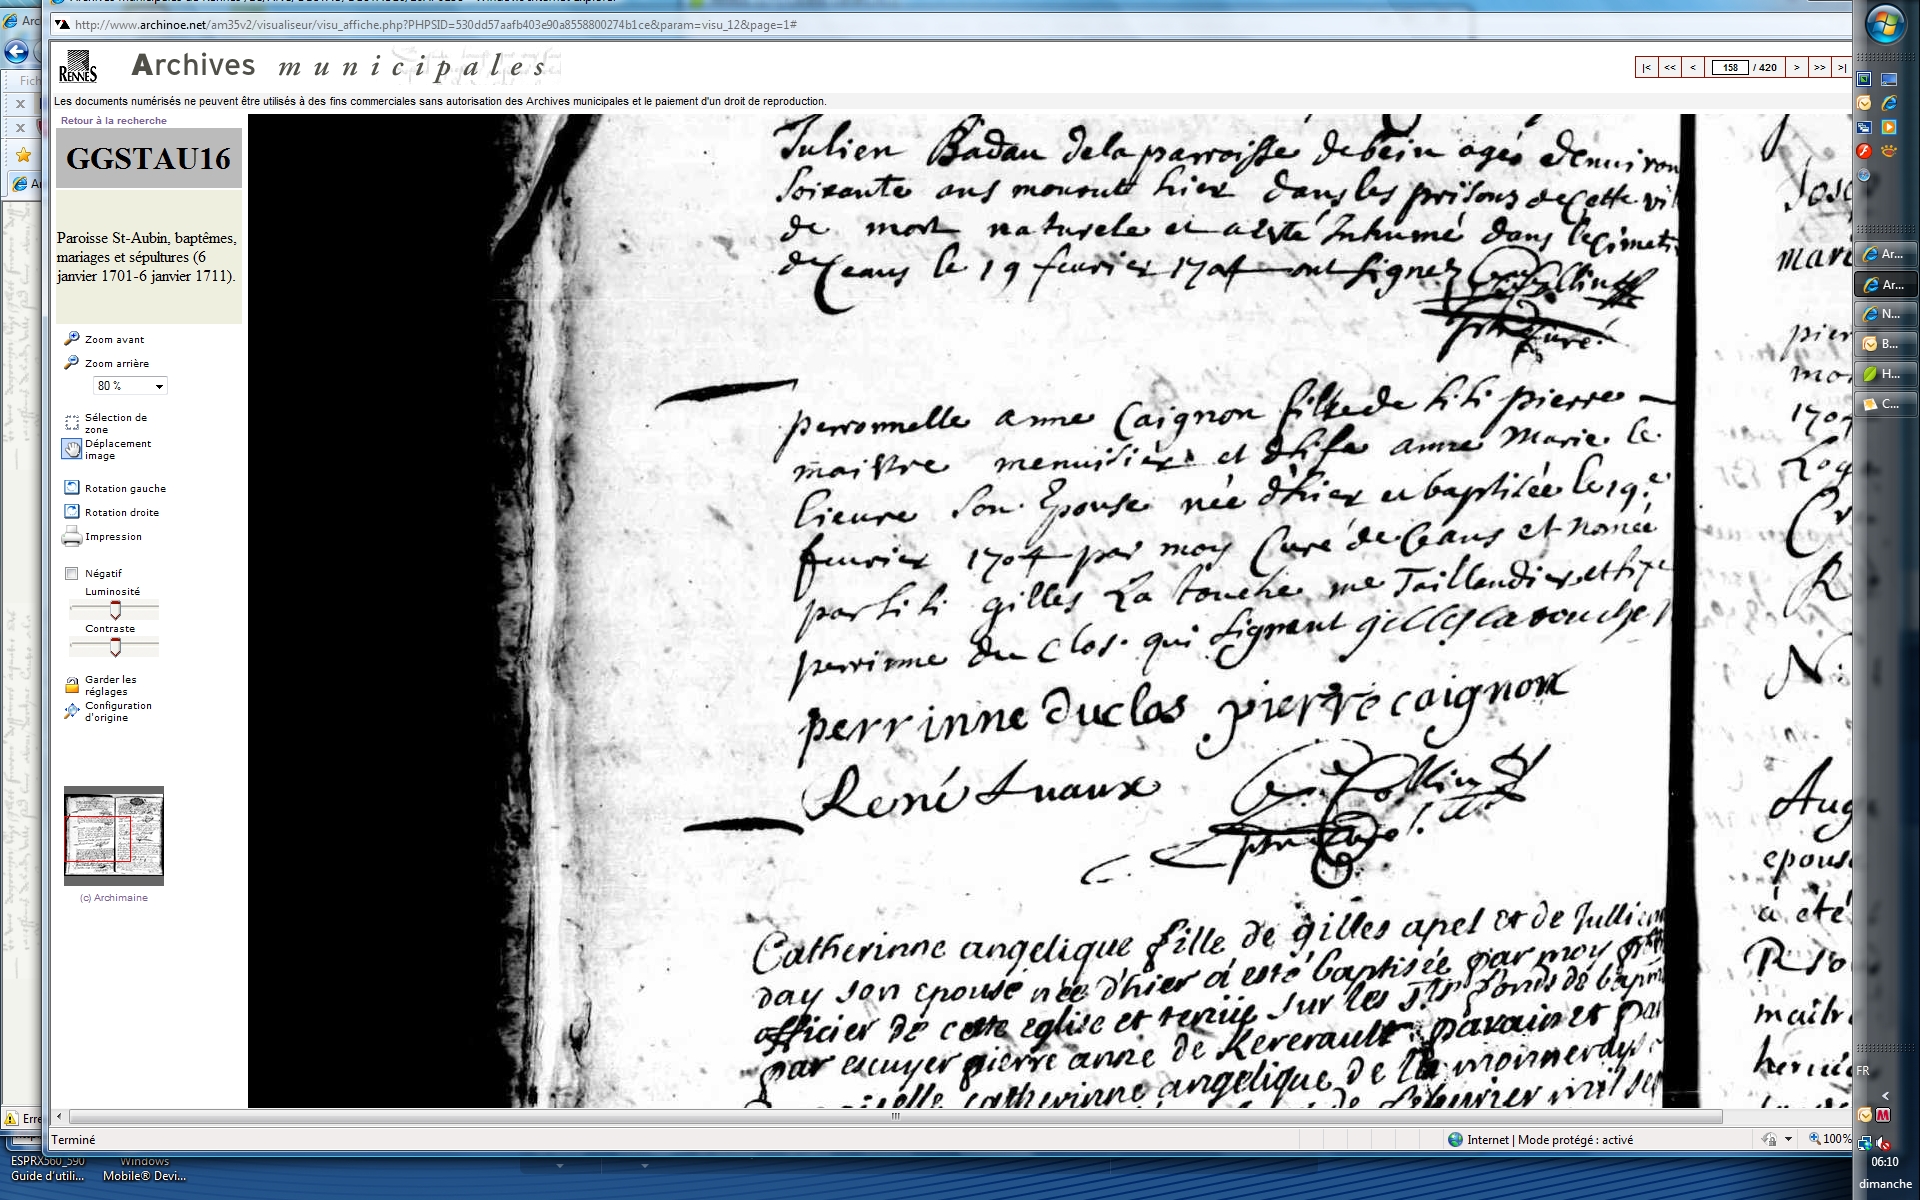 http://www.archinoe.net/am35v2/visualiseur/visu_affiche.php?PHPSID=530dd57aafb403e90a8558800274b1ce&param=visu_12&page=1#
RENNES
Archives municipales
|< << < 158 / 420 > >> >|
Les documents numérisés ne peuvent être utilisés à des fins commerciales sans autorisation des Archives municipales et le paiement d'un droit de reproduction.
Retour à la recherche
GGSTAU16
Paroisse St-Aubin, baptêmes,
mariages et sépultures (6
janvier 1701-6 janvier 1711).
Zoom avant
Zoom arrière
80 %
Sélection de
zone
Déplacement
image
Rotation gauche
Rotation droite
Impression
Négatif
Luminosité
Contraste
Garder les
réglages
Configuration
d'origine
(c) Archimaine
Julien Badau de la parroisse de bein agé denviron
soixante ans mourut hier dans les prisons de cette
de mort naturele et a esté Inhumé dans le
de Ceans le 19 feuvrier 1704 ont signez
curé
perronnelle anne Caignon fille de pierre
maistre menuisier et anne Marie le
lieure son Epouse née d'hier et baptisée le 19e
feuvrier 1704 par moy Curé de Ceans et nomée
par gilles La touche me Taillandier et
perrinne du clos qui signent gilles latouche
perrinne duclos pierre caignon
René Luaux
Catherinne angelique fille de gilles apel et de Jullienne
day son epouse née d'hier a esté baptisée par moy
officier de cette eglise et tenüe sur les sts fonds de
par escuyer pierre anne de Kererault parain et par
catherinne angelique de la monneraye
Jose
mari
pier
mo
1704
Aug
epouse
à été
maitr
Terminé
Internet | Mode protégé : activé
100%
Erre
ESPRX560_590
Guide d'utili...
Windows
Mobile® Devi...
Ar...
Ar...
N...
B...
H...
C...
FR
06:10
dimanche